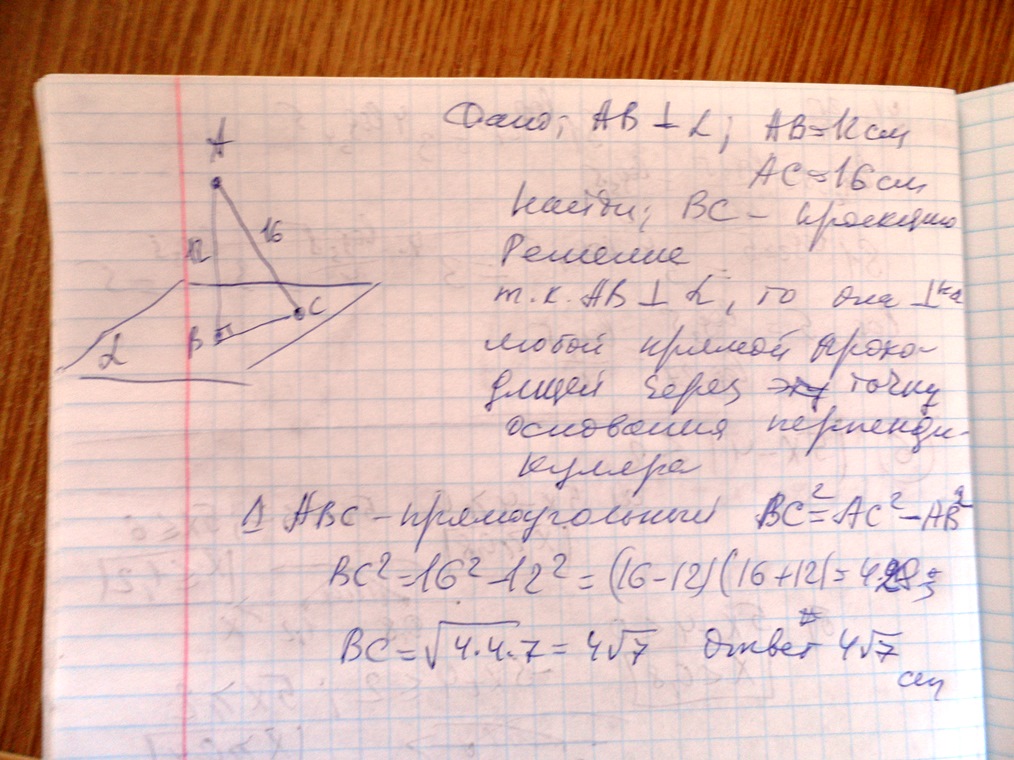 A
12
16
B
C
α
Дано; AB ⊥ α; AB=12см
AC=16см
Найди; BC – проекцию
Решение
т.к. AB ⊥ α, то она ⊥на
любой прямой прохо-
дящей через точку
основания перпенди-
куляра
Δ ABC – прямоугольный BC²=AC²–AB²
BC²=16²–12²=(16–12)(16+12)=4·28;
BC=√4·4·7=4√7 Ответ 4√7
см